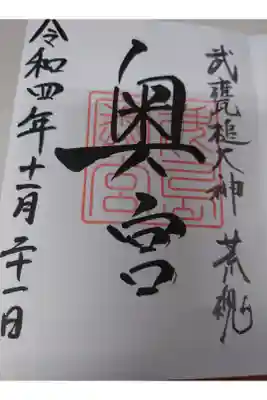 武甕槌大神 荒魂
奥宮
令和四年十一月二十一日